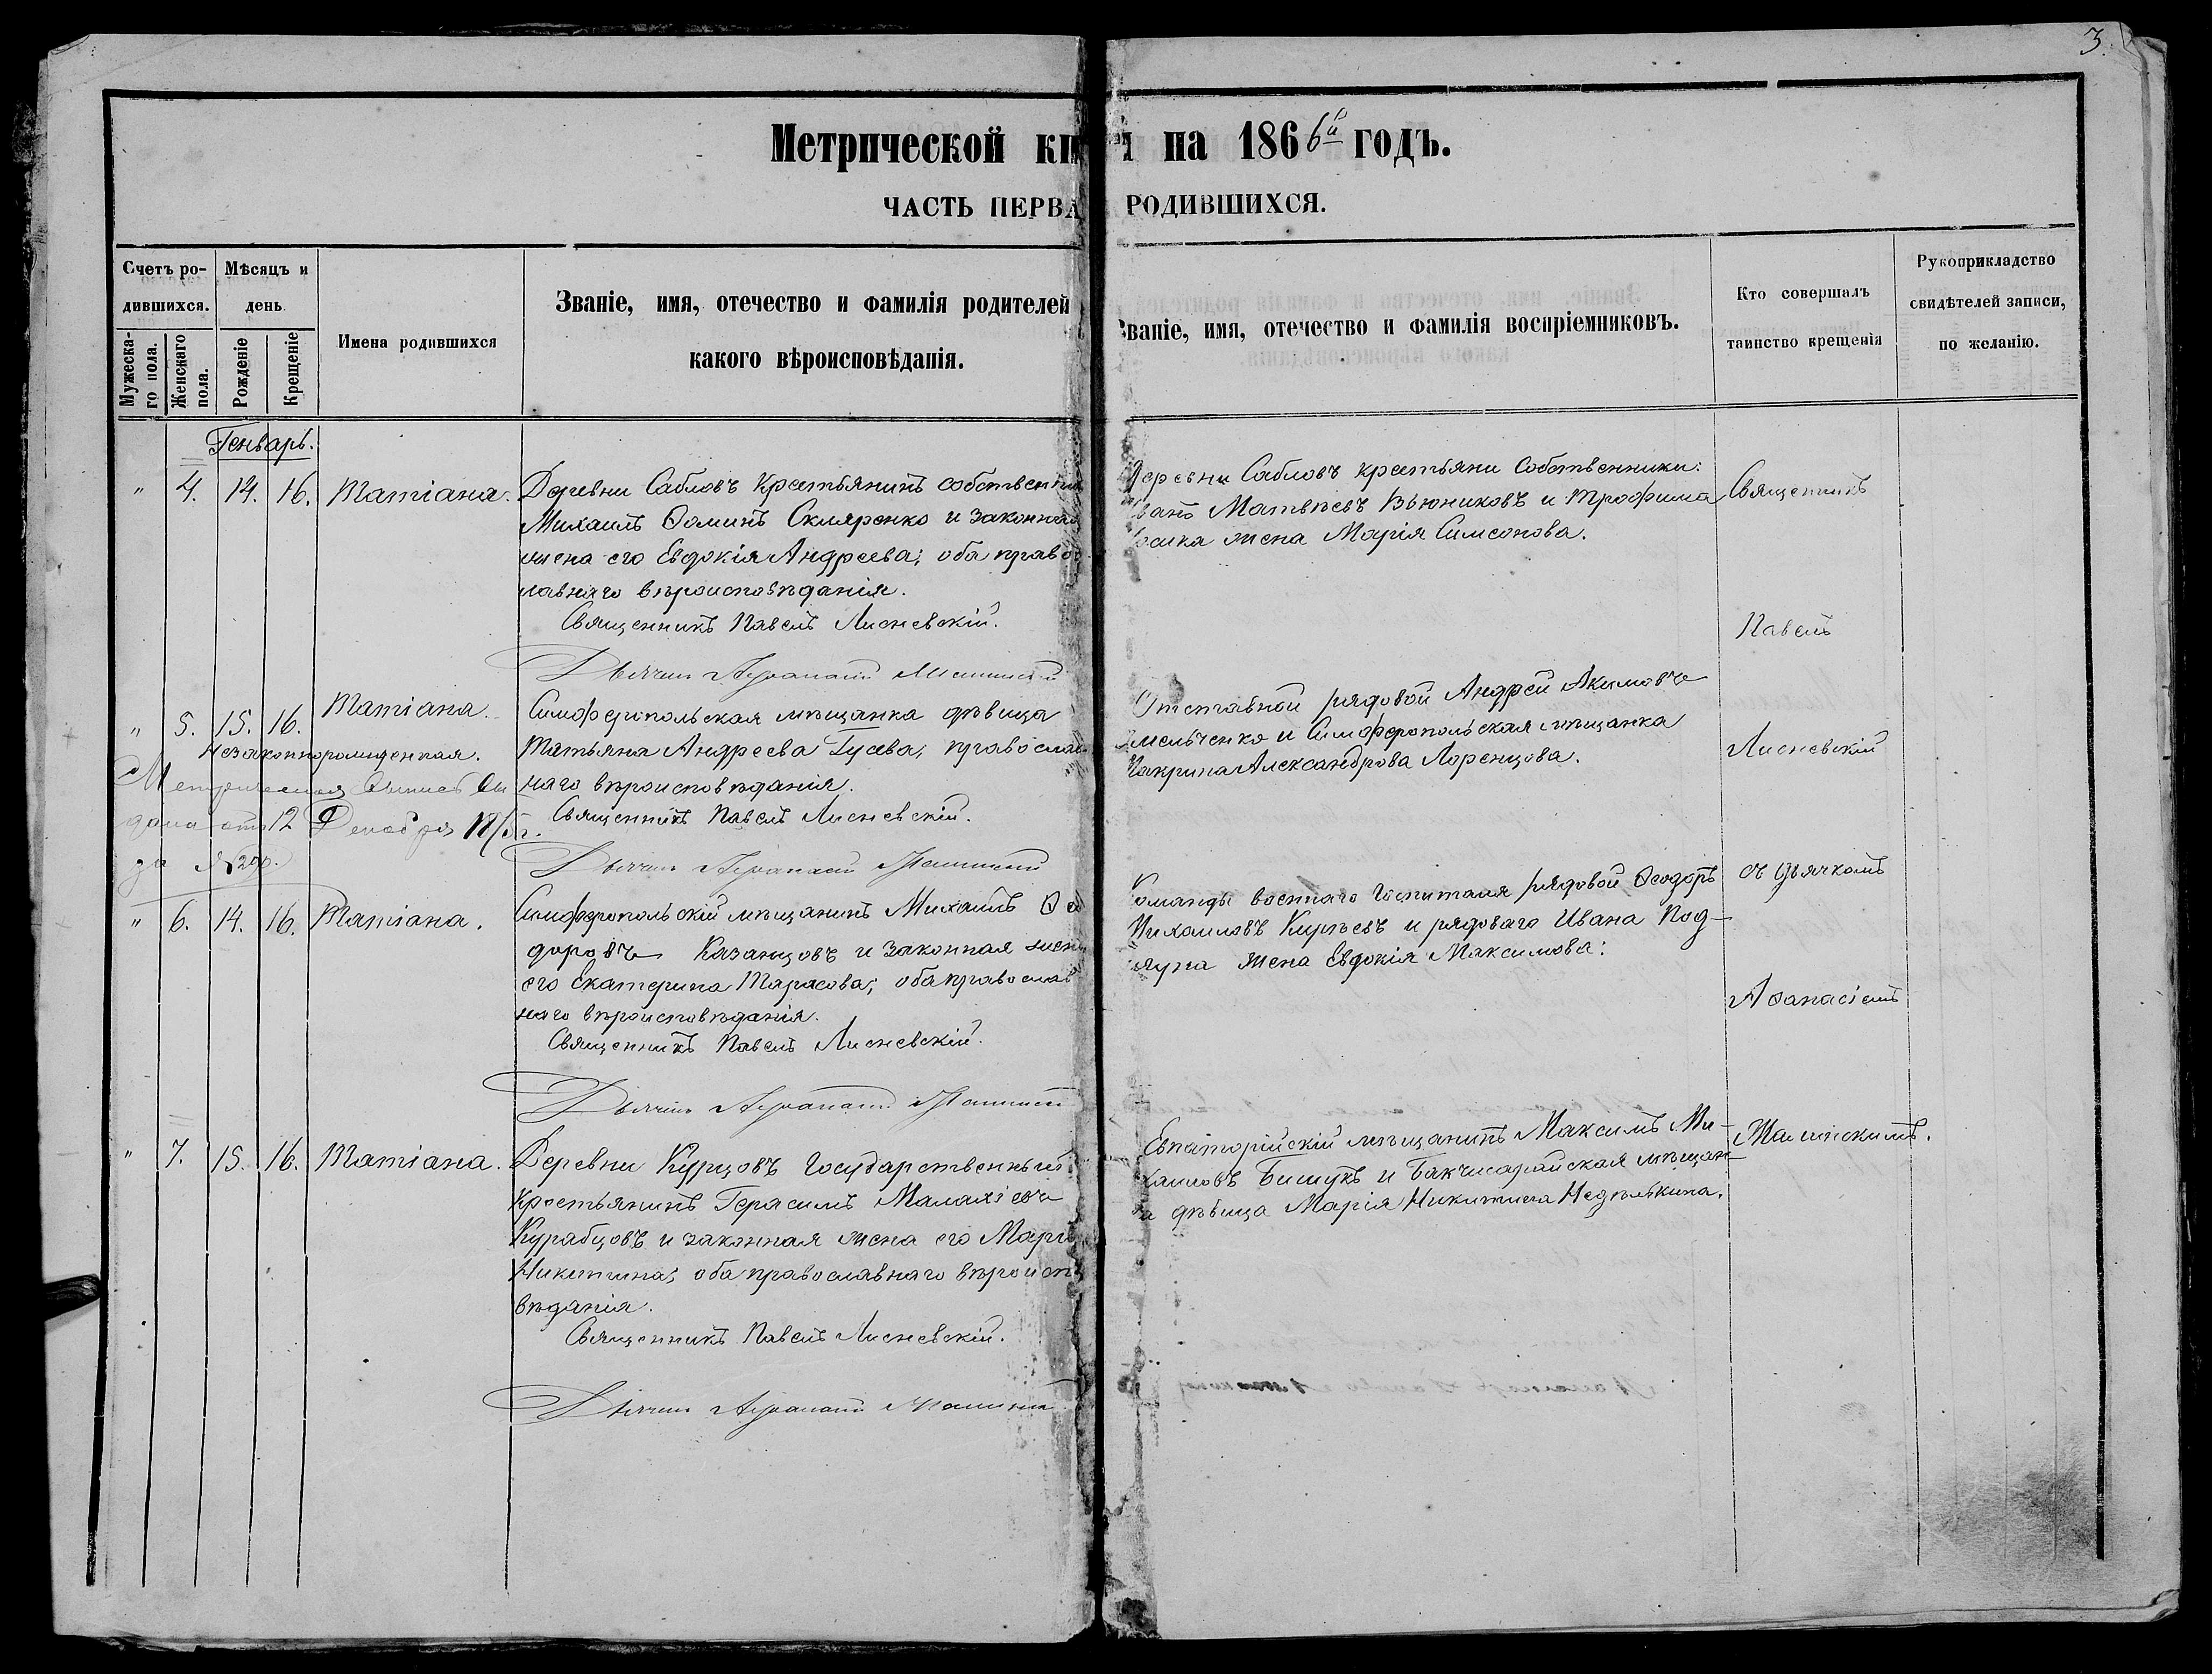 3.
Метрической кни на 1866й годъ.
ЧАСТЬ ПЕРВА РОДИВШИХСЯ.
Счетъ ро-
дившихся.
Мужеска-
го пола.
Женскаго
пола.
Мѣсяцъ и
день
Рожденіе
Крещеніе
Имена родившихся
Званіе, имя, отечество и фамилія родителей
какого вѣроисповѣданія.
Званіе, имя, отечество и фамилія воспріемниковъ.
Кто совершалъ
таинство крещенія
Рукоприкладство
свидѣтелей записи,
по желанію.
Генварь.
" 4. 14. 16. Татіана.
Деревни Сабловъ крестьянинъ собственни
Михаилъ Ѳоминъ Скляренко и законная
жена его Евдокія Андреева; оба право
лавнаго вѣроисповѣданія.
Священникъ Павелъ Лисневскій.
Дьячекъ
Деревни Сабловъ крестьяни собственники:
Иванъ Матвѣевъ Вьюниковъ и Трофима
жена Марія Симеонова.
" 5. 15. 16. Татіана.
незаконнорожденная.
Симферопольская мѣщанка дѣвица
Татьяна Андреева Гусева, православ
наго вѣроисповѣданія.
Священникъ Павелъ Лисневскій.
Дьячекъ
Метрическая выпись вы
дана отъ 12 Декабря
за №
Отставной рядовой Андрей Акимовъ
мельченко и Симферопольская мѣщанка
Александрова Лоренцова.
" 6. 14. 16. Татіана.
Симферопольскій мѣщанинъ Михаилъ Ѳео
доровъ Казанцовъ и законная жена
его Екатерина Тарасова; оба православ
наго вѣроисповѣданія.
Священникъ Павелъ Лисневскій.
Дьячекъ
Команды военнаго госпиталя рядовой Ѳеодоръ
Михаиловъ Кирѣевъ и рядоваго Ивана Под-
жена Евдокія Максимова:
" 7. 15. 16. Татіана.
Деревни Курцовъ Государственный
крестьянинъ Герасимъ Малахіевъ
Курабцовъ и законная жена его Марѳа
Никитина; оба православнаго вѣроиспо
вѣданія.
Священникъ Павелъ Лисневскій.
Дьячекъ
Евпаторійскій мѣщанинъ Максимъ Ми-
хаиловъ Бишукъ и Бакчисарайская мѣщан-
ка дѣвица Марія Никитина Недѣлькина.
Священникъ
Павелъ
Лисневскій
съ дьячкомъ
Аѳанасіемъ